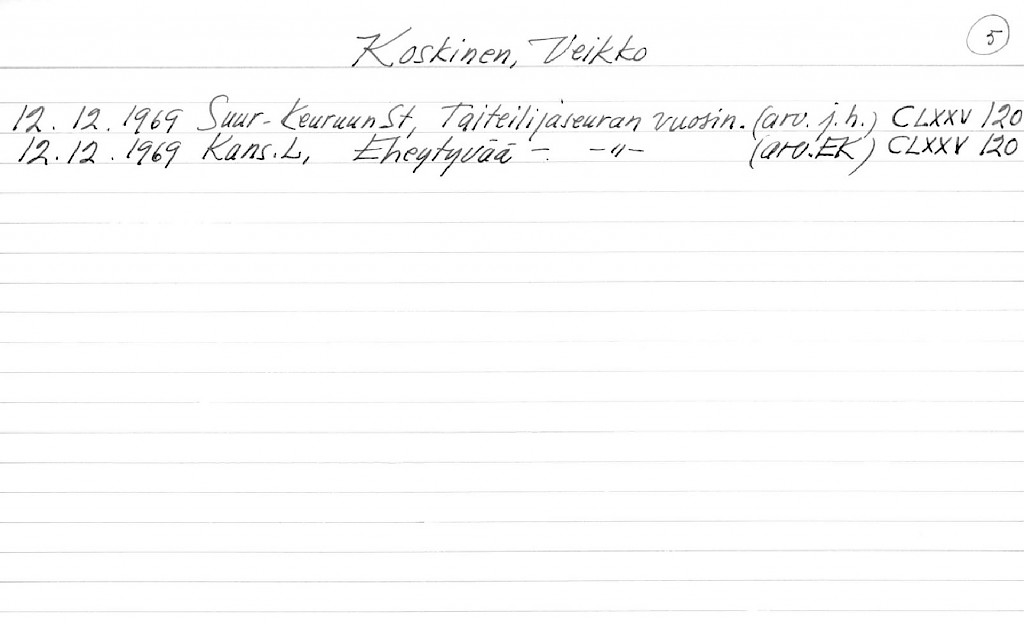 5
Koskinen, Veikko
12. 12. 1969 Suur-Keuruun St, Taiteilijaseuran vuosin. (arv. j.h.) CLXXV 120
12.12. 1969 Kans.L, Eheytyvää - -"- (arv. EK) CLXXV 120